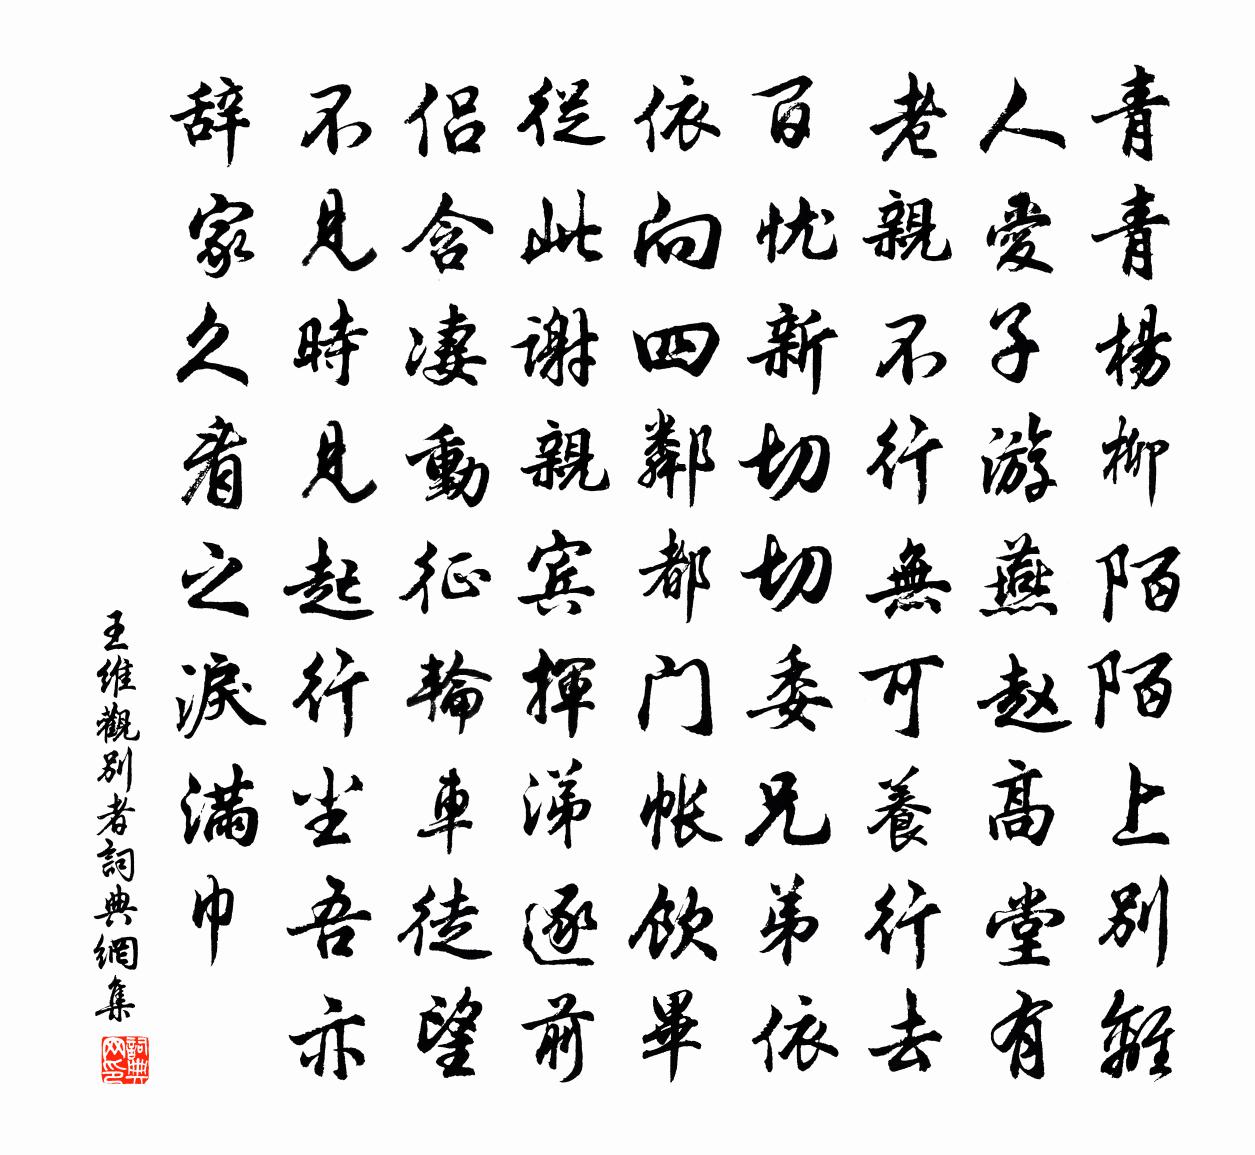 青青楊柳陌陌上別離
人愛子游燕赵高堂有
老親不行無可養行去
百忧新切切委兄弟依
依向四鄰都门帐飲畢
從此谢親宾揮涕逐前
侣含凄動征輪車徒望
不見時見起行尘吾亦
辞家久看之淚满巾
王维觀别者詞典網集
詞典网印